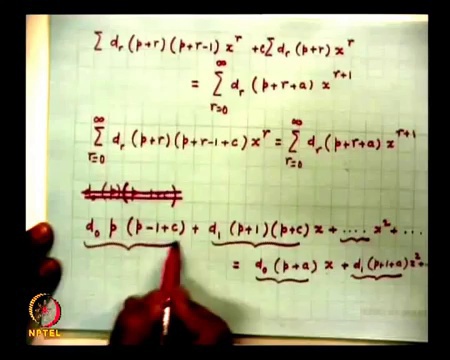 ∑ d_r (p+r)(p+r-1) x^r + c∑ d_r (p+r) x^r
= ∑_{r=0}^{∞} d_r (p+r+a) x^{r+1}
∑_{r=0}^{∞} d_r (p+r)(p+r-1+c) x^r = ∑_{r=0}^{∞} d_r (p+r+a) x^{r+1}
d_0 p (p-1+c) + d_1 (p+1)(p+c) x + .... x^2 + ...
= d_0 (p+a) x + d_1 (p+1+a) x^2 + ..
NPTEL